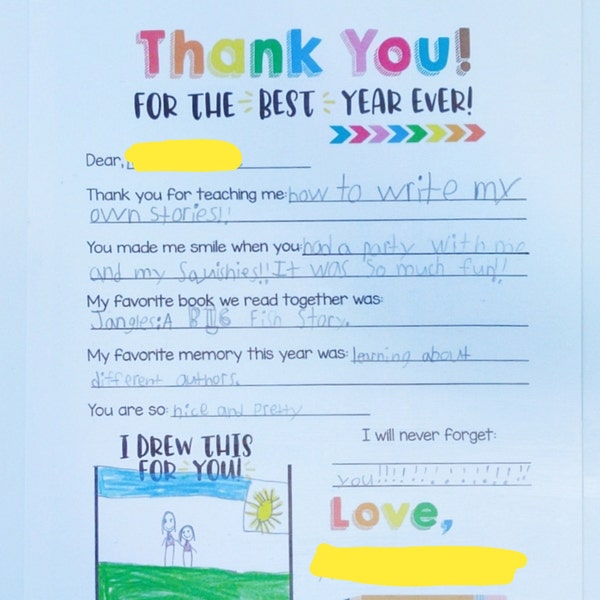 Thank You!
FOR THE BEST YEAR EVER!
Dear,
Thank you for teaching me: how to write my
own stories!!
You made me smile when you: had a party with me
and my Squishies!! It was so much fun!!
My favorite book we read together was:
Jangles: A BIG Fish Story.
My favorite memory this year was: learning about
different authors.
You are so: nice and pretty
I DREW THIS
FOR YOU!
I will never forget:
you!!!!!!!!!!!!!!
Love,